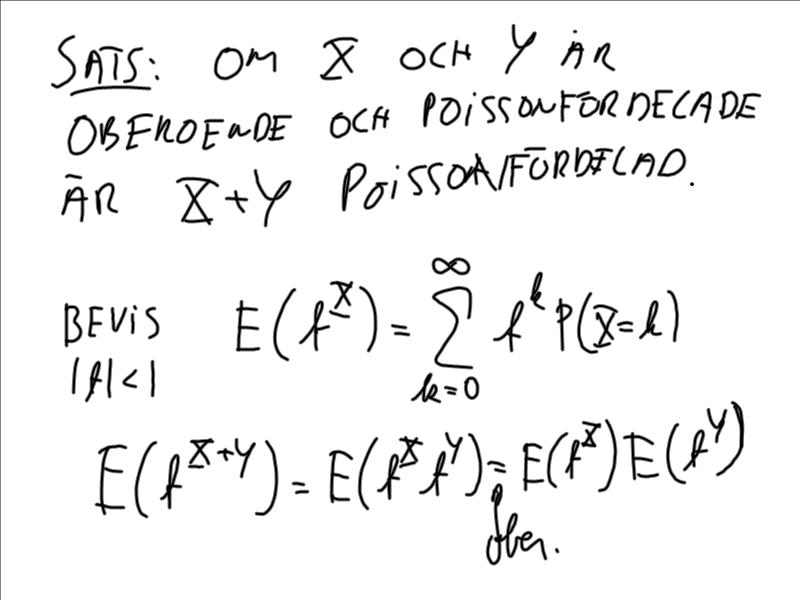 SATS: OM X OCH Y ÄR
OBEROENDE OCH POISSONFÖRDELADE
ÄR X+Y POISSONFÖRDELAD.
BEVIS E(t^X) = ∑_{k=0}^{∞} t^k P(X=k)
|t|<1
E(t^{X+Y}) = E(t^X t^Y) = E(t^X) E(t^Y)
ober.